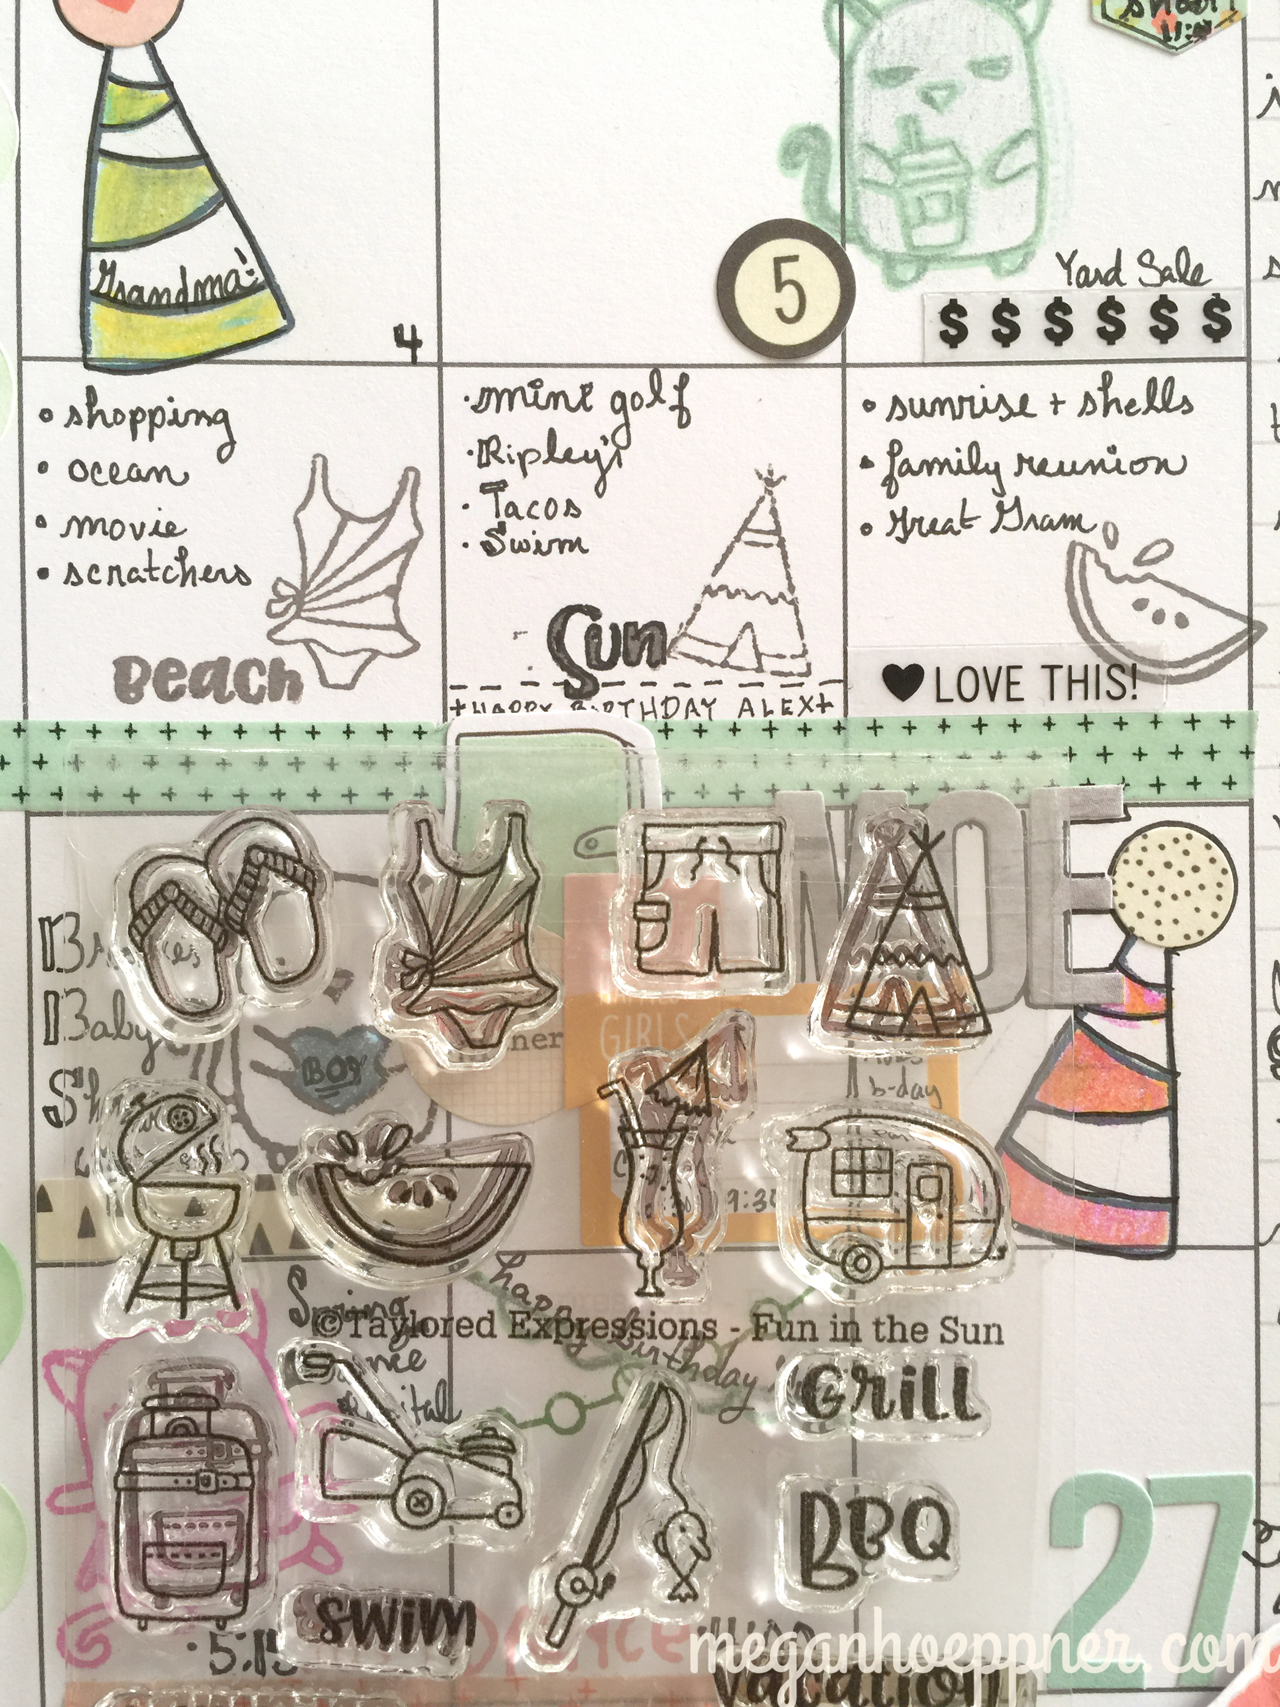 Grandma
4
5
Yard Sale
$ $ $ $ $ $
• shopping
• ocean
• movie
• scratchers
Beach
• mini golf
• Ripley's
• Tacos
• Swim
Sun
+HAPPY BIRTHDAY ALEX+
• sunrise + shells
• family reunion
• Great Gram
♥ LOVE THIS!
Baby
BOY
GIRLS
b-day
9:30
Spring
happy birthday
©Taylored Expressions - Fun in the Sun
Grill
BBQ
27
swim
• 5:15
meganhoeppner.com
vacation